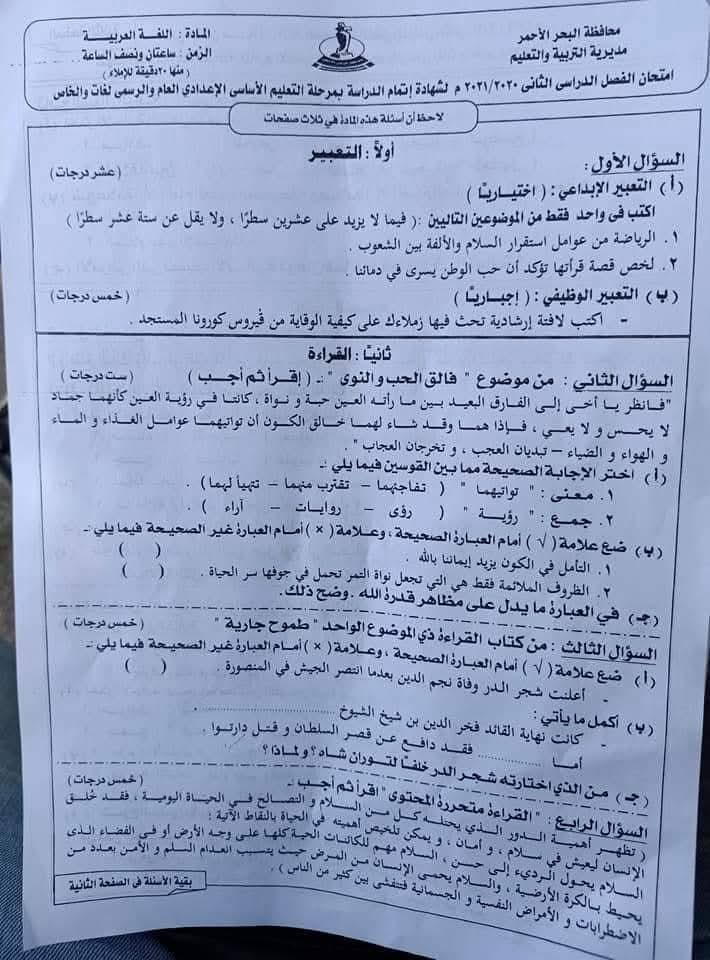 محافظة البحر الأحمر
مديرية التربية والتعليم
المادة : اللغة العربية
الزمن : ساعتان ونصف الساعة
(منها ٢٠ دقيقة للإملاء)
امتحان الفصل الدراسى الثانى ٢٠٢١/٢٠٢٠ م لشهادة إتمام الدراسة بمرحلة التعليم الأساسى الإعدادي العام والرسمى لغات والخاص
لاحظ أن أسئلة هذه المادة في ثلاث صفحات
أولاً : التعبير
السؤال الأول : (عشر درجات)
(أ) التعبير الإبداعي : ( اختياريًا )
اكتب فى واحد فقط من الموضوعين التاليين :( فيما لا يزيد على عشرين سطرًا ، ولا يقل عن ستة عشر سطرًا )
١. الرياضة من عوامل استقرار السلام والألفة بين الشعوب .
٢. لخص قصة قرأتها تؤكد أن حب الوطن يسرى في دمائنا .
(ب) التعبير الوظيفي : ( إجباريًا ) ( خمس درجات)
- اكتب لافتة إرشادية تحث فيها زملاءك على كيفية الوقاية من فيروس كورونا المستجد .
ثانيًا : القراءة
السؤال الثاني : من موضوع " فالق الحب و النوى " :ـ ( إقرأ ثم أجب ) (ست درجات )
"فانظر يا أخى إلى الفارق البعيد بين ما رأته العين حبة و نواة ، كانتا في رؤية العين كأنهما جماد
لا يحس و لا يعي ، فإذا هما وقد شاء لهما خالق الكون أن تواتيهما عوامل الغذاء و الماء
و الهواء و الضياء – تبديان العجب ، و تخرجان العجاب " .
(أ) اختر الإجابة الصحيحة مما بين القوسين فيما يلي :ـ
١. معنى : " تواتيهما " ( تفاجئهما – تقترب منهما – تتهيأ لهما ) .
٢. جمع : " رؤية " ( رؤى – روايات – آراء ) .
(ب) ضع علامة (√) أمام العبارة الصحيحة ، وعلامة (×) أمام العبارة غير الصحيحة فيما يلي :ـ
١. التأمل في الكون يزيد إيماننا بالله . ( )
٢. الظروف الملائمة فقط هي التي تجعل نواة التمر تحمل في جوفها سر الحياة . ( )
(جـ) في العبارة ما يدل على مظاهر قدرة الله . وضح ذلك.
السؤال الثالث : من كتاب القراءة ذي الموضوع الواحد " طموح جارية " ( خمس درجات )
(أ) ضع علامة (√) أمام العبارة الصحيحة ، وعلامة (×) أمام العبارة غير الصحيحة فيما يلي :ـ
- أعلنت شجر الدر وفاة نجم الدين بعدما انتصر الجيش في المنصورة . ( )
(ب) أكمل ما يأتي :
- كانت نهاية القائد فخر الدين بن شيخ الشيوخ ..............................
أما .................... فقد دافع عن قصر السلطان و قتل دارتوا .
(جـ) من الذي اختارته شجر الدر خلفًا لتوران شاه ؟ ولماذا ؟
السؤال الرابع : " القراءة متحررة المحتوى " إقرأ ثم أجب :ـ ( خمس درجات)
( تظهر أهمية الدور الذي يحتله كل من السلام و التصالح في الحياة اليومية ، فقد خُلق
الإنسان ليعيش في سلام ، و أمان ، و يمكن تلخيص أهميته في الحياة بالنقاط الآتية :
السلام يحول الرديء إلى حسن ، السلام مهم للكائنات الحية كلها على وجه الأرض أو فى الفضاء الذى
يحيط بالكرة الأرضية ، والسلام يحمى الإنسان من المرض حيث يتسبب انعدام السلم و الأمن بعدد من
الاضطرابات و الأمراض النفسية و الجسمانية فتتفشى بين كثير من الناس ) .
بقية الأسئلة فى الصفحة الثانية